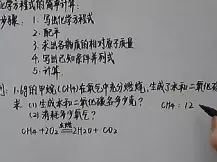 化学方程式的简单计算:
步骤: 1. 写出化学方程式
2. 配平
3. 求出各物质的相对原子质量
4. 写出已知条件并列式
5. 计算.
例: 1.6g的甲烷(CH4)在氧气中充分燃烧, 生成了水和二氧化碳
求 (1) 生成水和二氧化碳各多少克?
(2) 消耗多少氧气?
CH4: 12
CH4+2O2 点燃 2H2O+CO2